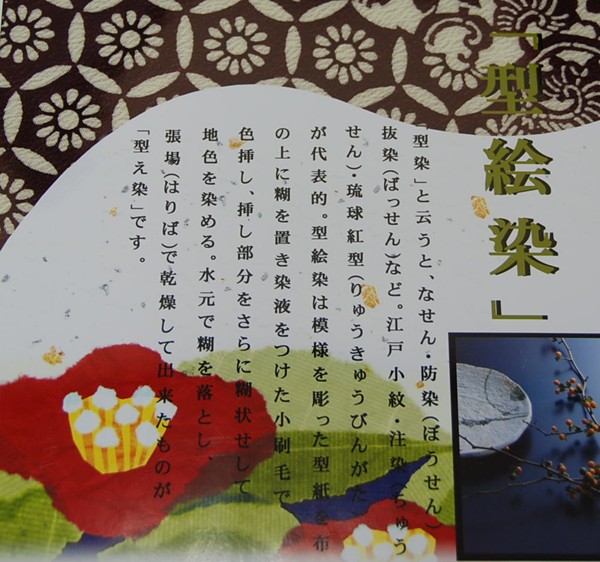 「型絵染」
型染」と云うと、なせん・防染(ぼうせん)
抜染(ばっせん)など。江戸小紋・注染(ちゅう
せん)・琉球紅型(りゅうきゅうびんがた
が代表的。型絵染は模様を彫った型紙を布
の上に糊を置き染液をつけた小刷毛で
色挿し、挿し部分をさらに糊状せして
地色を染める。水元で糊を落とし、
張場(はりば)で乾燥して出来たものが
「型え染」です。